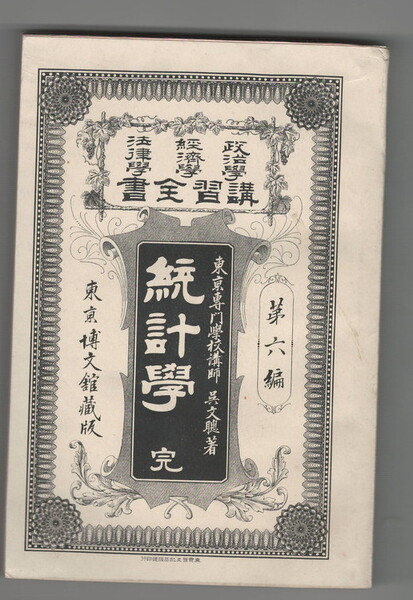 政治學
經濟學
法律學
講習全書
第六編
東京専門學校講師 呉文聰著
統計學 完
東京博文舘藏版